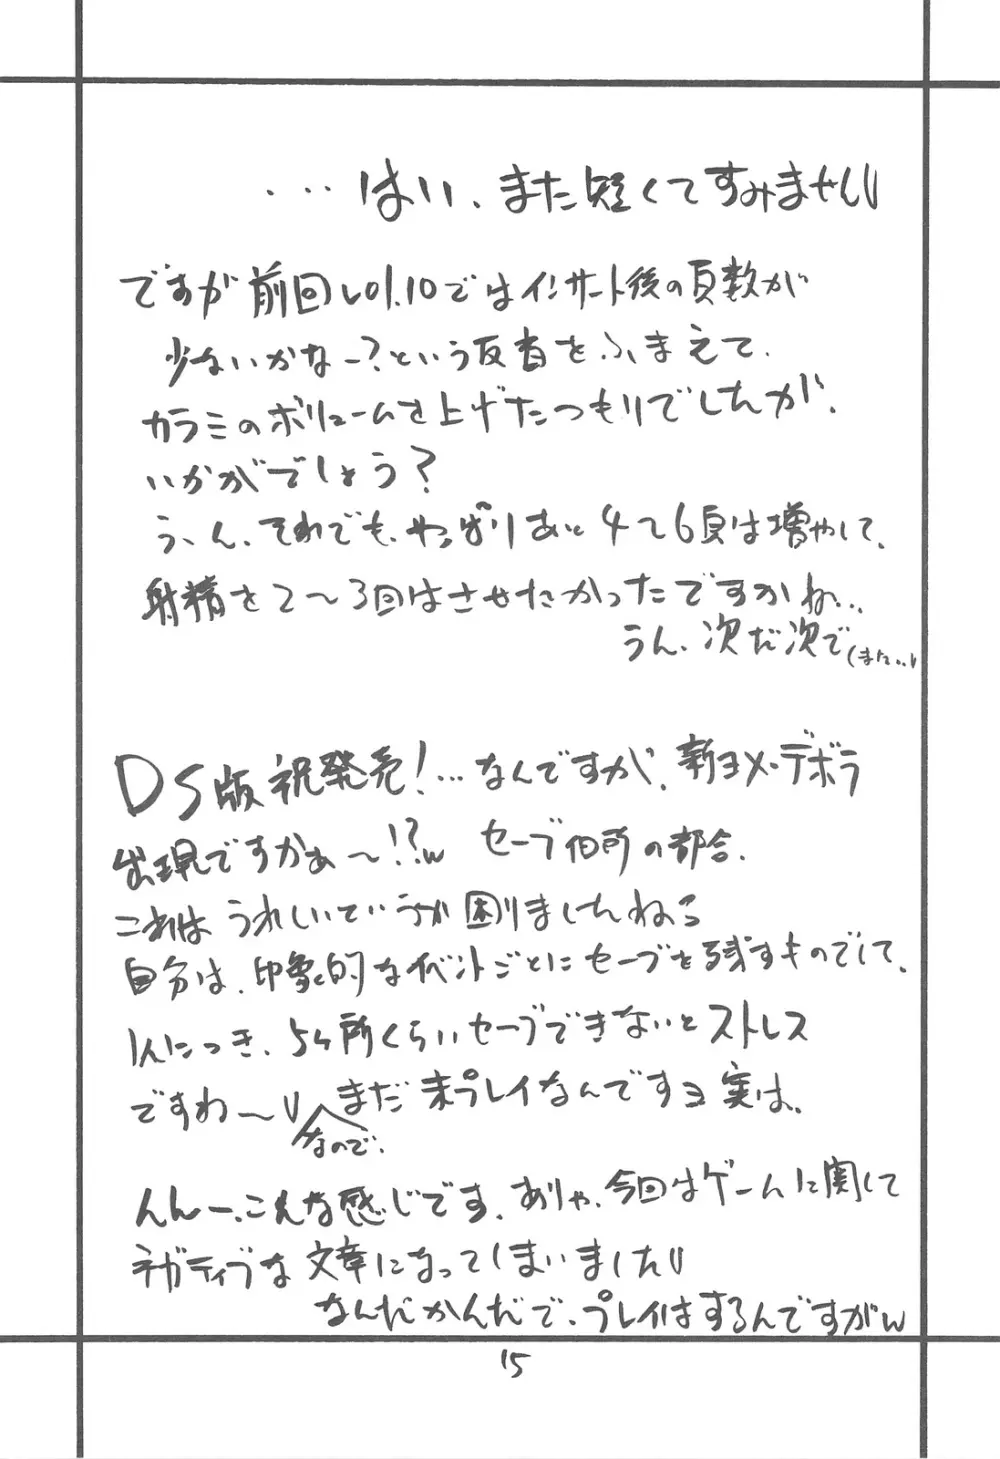 ・・・はい、また短くてすみません
ですが前回vol.10ではインサート後の頁数が
少ないかなー?という反省をふまえて、
カラミのボリュームを上げたつもりでしたが、
いかがでしょう?
う、ん、それでも、やっぱりあと4~6頁は増やして、
射精を2〜3回はさせたかったですかね...
うん、次だ次で(また..)
DS版祝発売!...なんですが、新ヨメ・デボラ
出現ですかぁ〜!?w セーブ個所の都合、
これは うれしいていうか困りましたねぇ
自分は、印象的なイベントごとにセーブを残すものでして、
1人につき、5ヶ所くらいセーブできないとストレス
ですわ〜 なので、まだ未プレイなんですヨ実は、
んんー、こんな感じです、ありゃ、今回はゲームに関して
ネガティブな文章になってしまいました
なんだかんだで、プレイはするんですがw
15